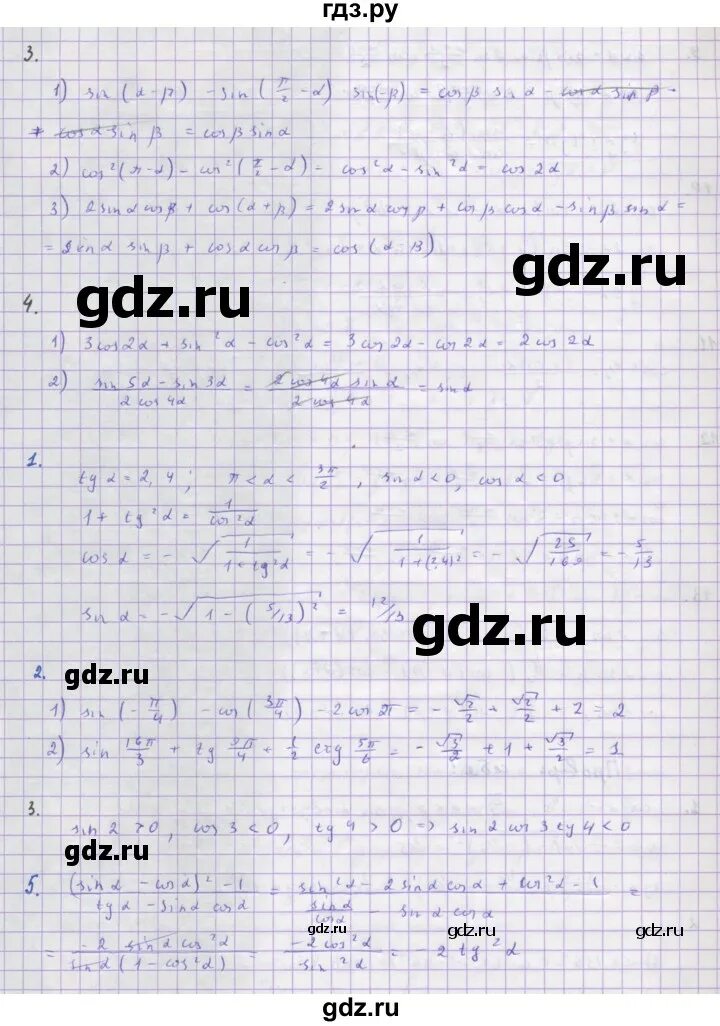 гдз.ру
3.
1) sin (α-β) - sin (π/2 - α) sin(-β) = cosβ sinα - cosα sinβ +
+ cosα sin β = cosβ sinα
2) cos²(π-α) - cos²(π/2 - α) - cos²α - sin²α = cos 2α
3) 2 sinα cosβ + cos (α+β) = 2 sinα cosβ + cosβ cosα - sinβ sinα =
= 2 sinα sinβ + cosα cosβ = cos (α-β)
gdz.ru
gdz.ru
4.
1) 3cos2α + sin²α - cos²α = 3 cos 2α - cos 2α = 2 cos 2α
2) (sin 5α - sin 3α)/(2 cos 4α) = (2 cos 4α sin α)/(2 cos 4α) = sin α
1.
tg α = 2,4; π < α < 3π/2, sin α < 0, cos α < 0
1 + tg²α = 1/cos²α
cos α = - √(1/(1+tg²α)) = - √(1/(1+(2,4)²)) = - √(25/169) = - 5/13
sin α = - √(1 - (5/13)²) = 12/13
gdz.ru
2.
gdz.ru
1) sin (-π/4) - cos (3π/4) - 2 cos 2π = - √2/2 + √2/2 + 2 = 2
2) sin 16π/3 + tg 9π/4 + 1/2 ctg 5π/6 = - √3/2 + 1 + √3/2 = 1
3.
sin 2 > 0, cos 3 < 0, tg 4 > 0 => sin 2 cos 3 tg 4 < 0
gdz.ru
5. ((sin α - cos α)² - 1)/(tg α - sin α cos α) = (sin²α - 2 sin α cos α + cos²α - 1)/(sin α/cos α - sin α cos α) =
= (-2 sin α cos²α)/(sin α (1 - cos²α)) = (-2 cos²α)/(sin²α) = - 2 tg²α
gdz.ru
gdz.ru